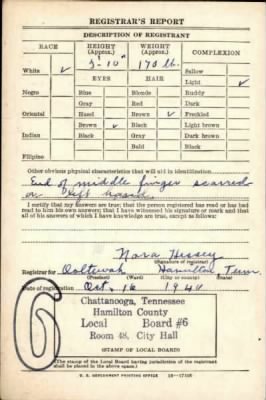 REGISTRAR'S REPORT
DESCRIPTION OF REGISTRANT
RACE HEIGHT (Approx.) WEIGHT (Approx.) COMPLEXION
5-10" 170 lb. Sallow
White ✓ EYES HAIR Light ✓
Negro Blue Blonde Ruddy
Gray Red Dark
Oriental Hazel Brown ✓ Freckled
Brown ✓ Black Light brown
Indian Black Gray Dark brown
Bald Black
Filipino
Other obvious physical characteristics that will aid in identification
End of middle finger scarred
on left hand.
I certify that my answers are true; that the person registered has read or has had
read to him his own answers; that I have witnessed his signature or mark and that
all of his answers of which I have knowledge are true, except as follows:
Nora Hessey
(Signature of registrar)
Registrar for Ooltewah Hamilton Tenn.
(Precinct) (Ward) (City or county)
Date of registration Oct. 16 1940
6
Chattanooga, Tennessee
Hamilton County
Local Board #6
Room 48, City Hall
(STAMP OF LOCAL BOARD)
(The stamp of the Local Board having jurisdiction of the registrant
shall be placed in the above space.)
U. S. GOVERNMENT PRINTING OFFICE